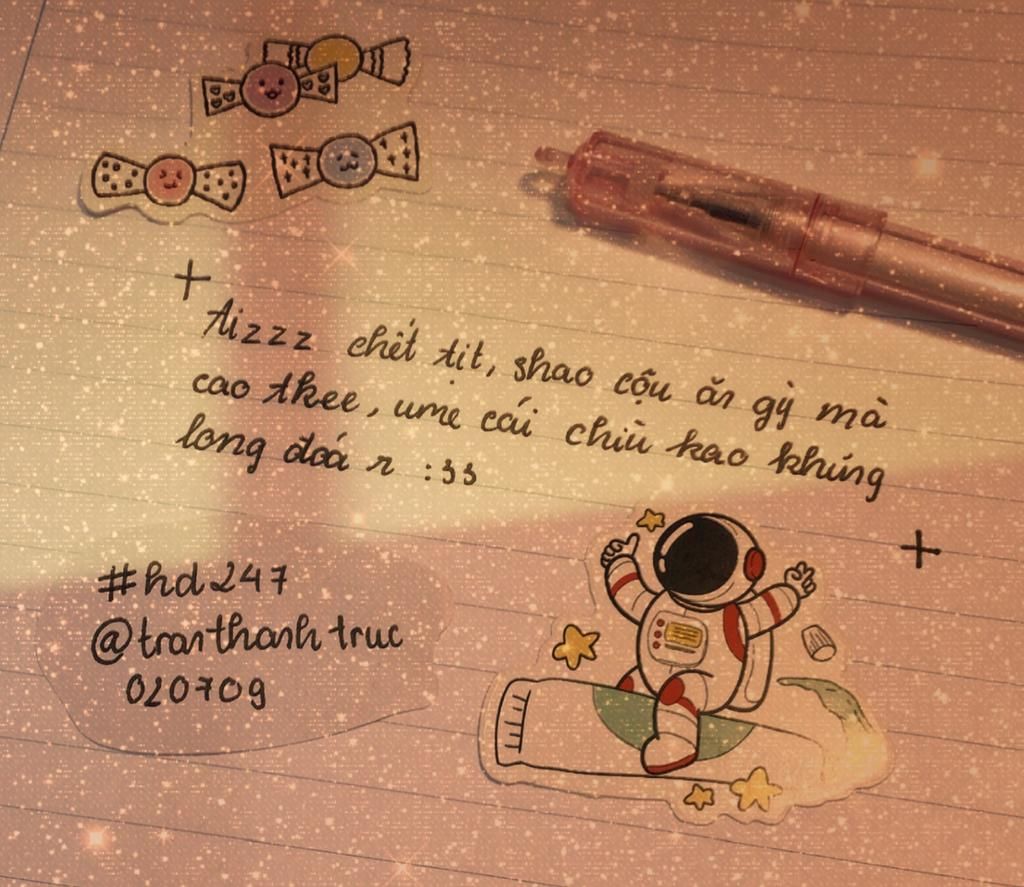 Aizzz chết tịt, shao cộu ăn gỳ mà
cao thee, ume cái chiù kao khúng
long đoá r :33
#hd247
@tranthanhtruc
020709